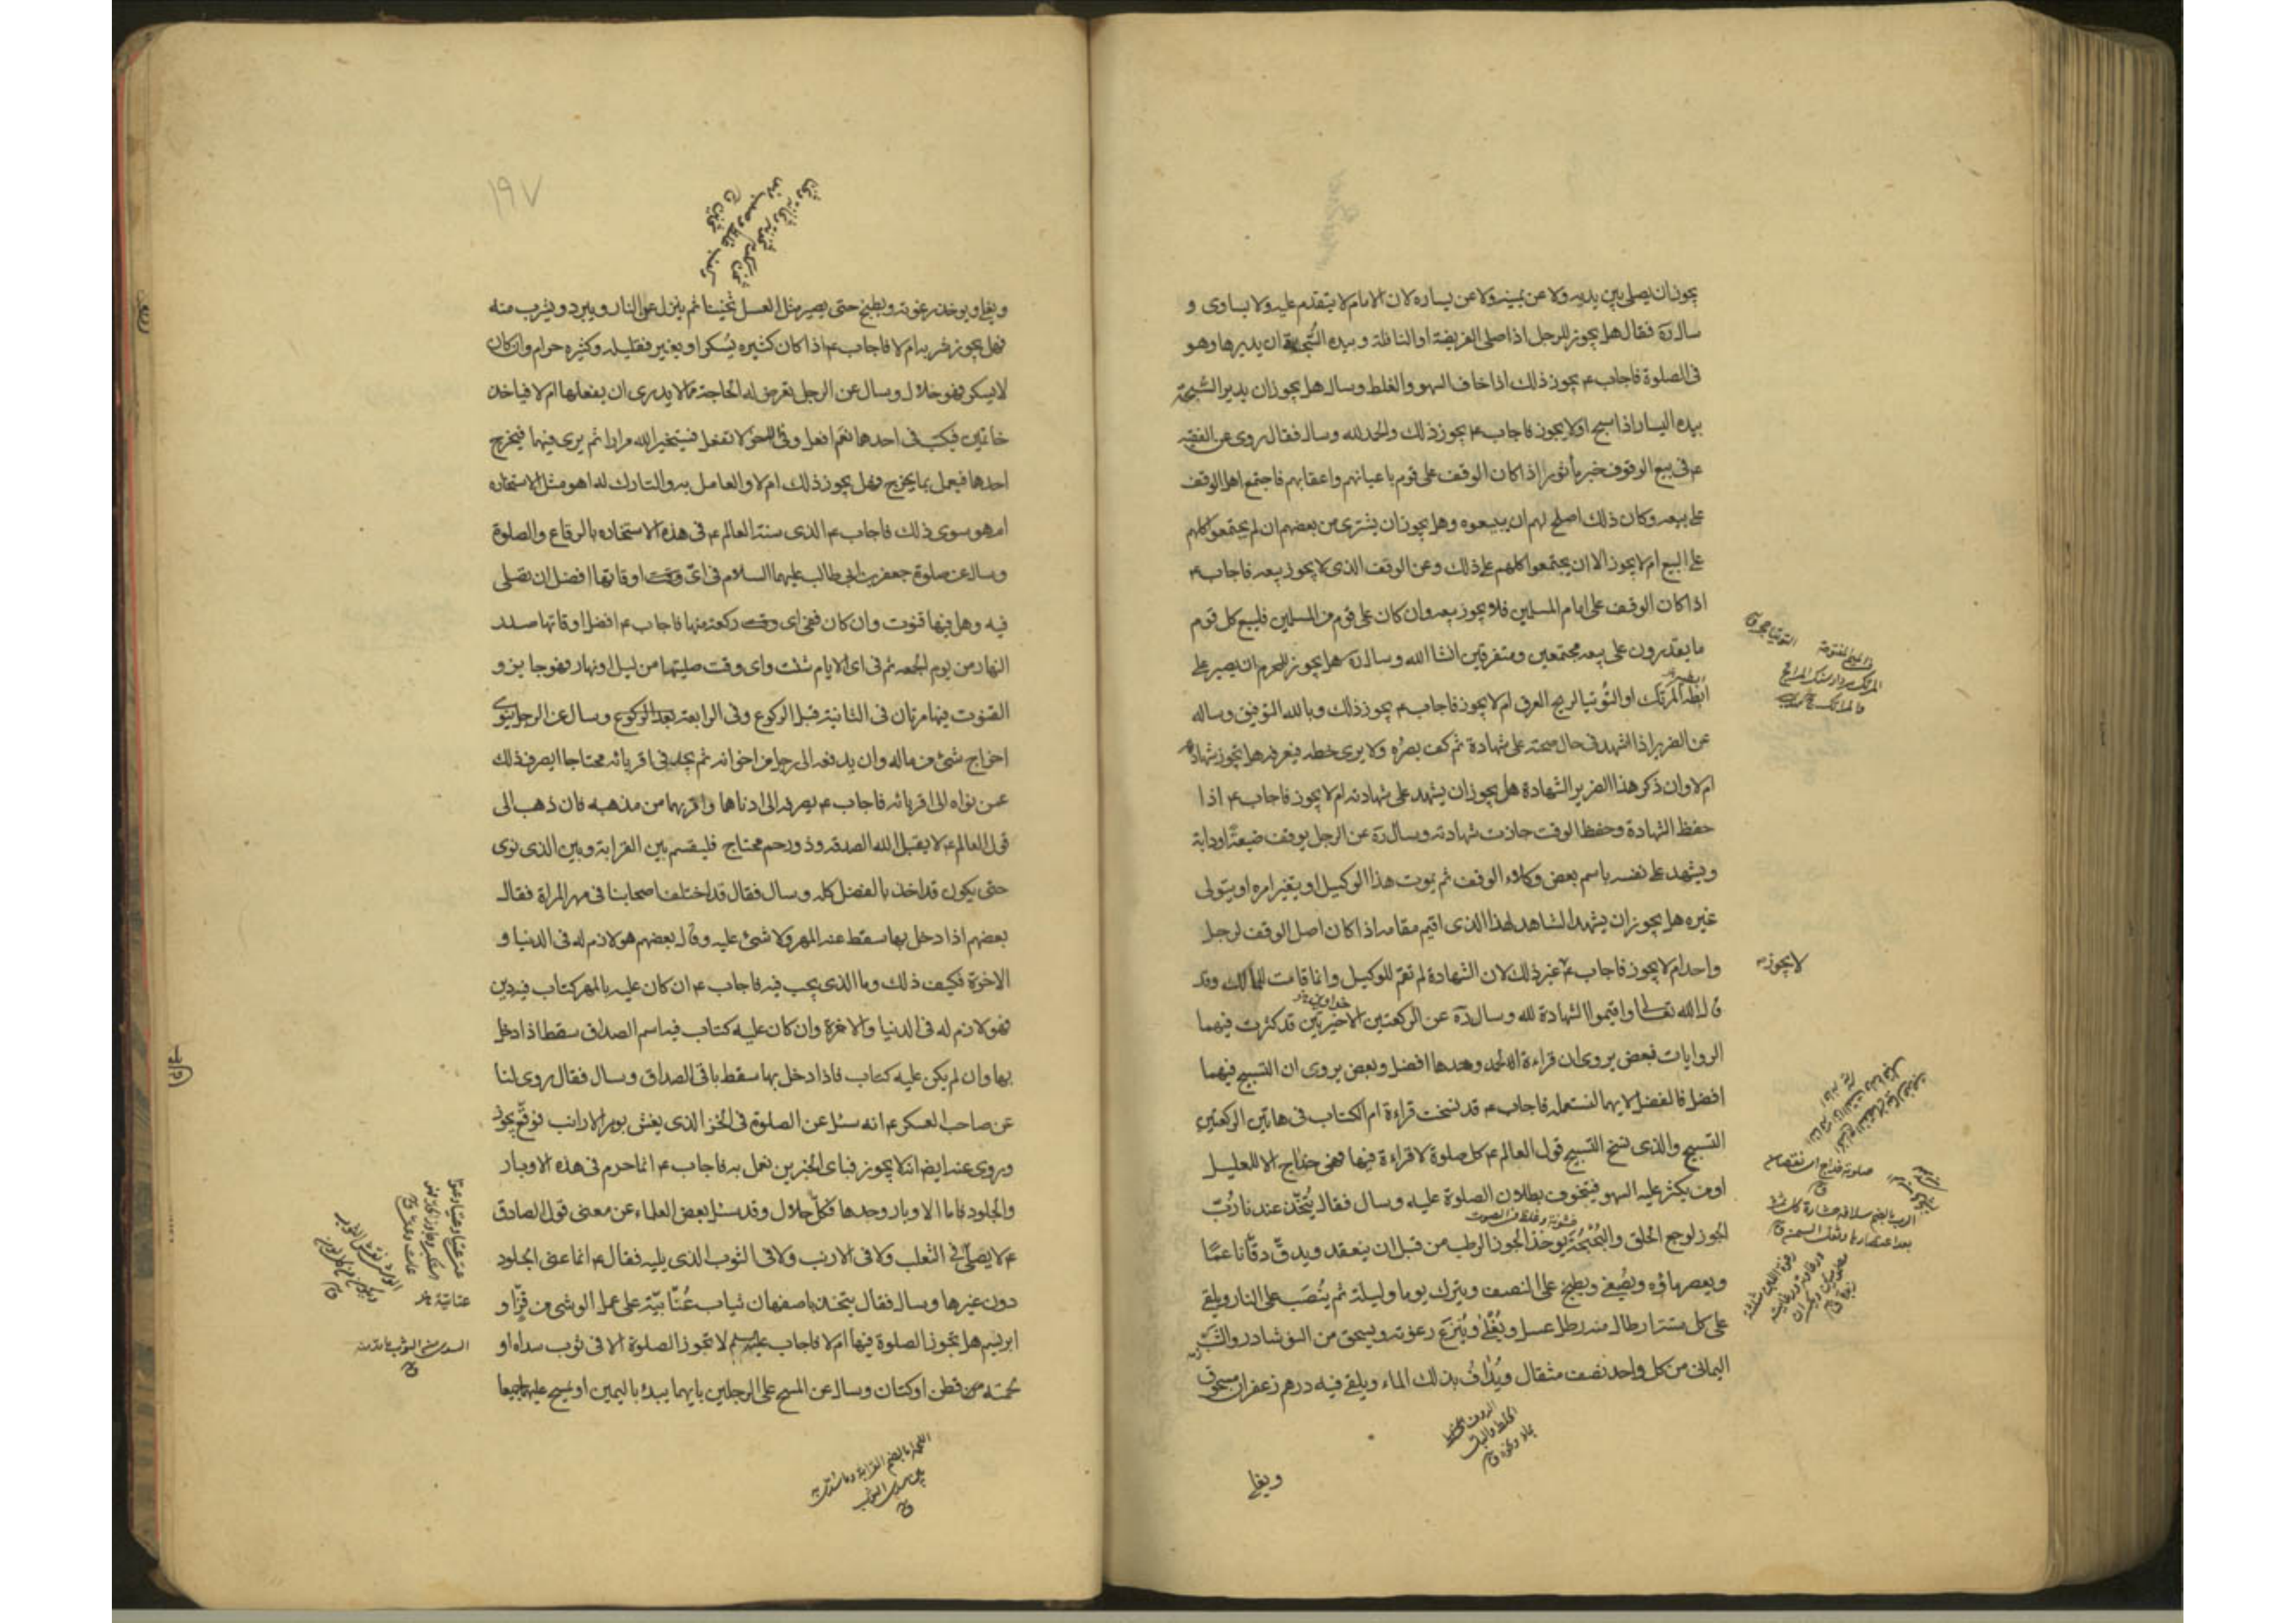 يجوز ان يصلى بين يديه ولا عن يمينه ولا عن يساره لان الامام لا يتقدم عليه ولا يساوى و
ساله فقال هل يجوز للرجل اذا صلى الفريضة او النافلة و بيده السُّبحة ان يديرها وهو
فى الصلوة فاجاب ع يجوز ذلك اذا خاف السهو والغلط وسال هل يجوز ان يدير السُّبحة
بيده اليسار اذا سبح او لا يجوز فاجاب ع يجوز ذلك والحمد لله وسال فقال روى عن الفقيه
ع فى بيع الوقوف خبر مأثور اذا كان الوقف على قوم باعيانهم واعقابهم فاجتمع اهل الوقف
على بيعه وكان ذلك اصلح لهم ان يبيعوه وهل يجوز ان يشترى من بعضهم ان لم يجتمعوا كلهم
على البيع ام لا يجوز الا ان يجتمعوا كلهم على ذلك وعن الوقف الذى لا يجوز بيعه فاجاب ع
اذا كان الوقف على امام المسلمين فلا يجوز بيعه وان كان على قوم من المسلمين فليبع كل قوم
ما يقدرون على بيعه مجتمعين ومتفرقين انشا الله وساله هل يجوز للمحرم ان يصير على
ابطه المرتك او التُّوتيا لريح العرق ام لا يجوز فاجاب ع يجوز ذلك وبالله التوفيق وساله
عن الضرير اذا اشهد فى حال صحته على شهادة ثم كف بصرُه ولا يرى خطه فيعرفه هل تجوز شهادته
ام لا وان ذكر هذا الضرير الشهادة هل يجوز ان يشهد على شهادته ام لا يجوز فاجاب ع اذا
حفظ الشهادة وحفظ الوقت جازت شهادته وساله عن الرجل يوقف ضيعةً او دابة
ويشهد على نفسه باسم بعض وكلاء الوقف ثم يموت هذا الوكيل او يتغير امره او يتولى
غيره هل يجوز ان يشهد الشاهد لهذا الذى اقيم مقامه اذا كان اصل الوقف لرجل
واحد ام لا يجوز فاجاب ع غير ذلك لان الشهادة لم تقم للوكيل وانما قامت للمالك وقد
لا يجوز
قال الله تعالى واقيموا الشهادة لله وساله عن الركعتين الاخيرتين قد كثرت فيهما
الروايات فبعض يروى ان قراءة الحمد وحدها افضل وبعض يروى ان التسبيح فيهما
افضل فالفضل لايهما لنستعمله فاجاب ع قد نسخت قراءة ام الكتاب فى هاتين الركعتين
التسبيح والذى نسخ التسبيح قول العالم ع كل صلوة لا قراءة فيها فهى خداج الا للعليل
او من يكثر عليه السهو فيتخوف بطلان الصلوة عليه وسال فقال يُتخّذ عندنا رُبّ
الجوز لوجع الحلق والبُحْبُحة يوخذ الجوز الرطب من قبل ان ينعقد ويدقّ دقّا ناعمًا
ويعصر ماؤه ويُصفى ويطبخ على النصف ويترك يوما وليلة ثم يُنصَب على النار ويلقى
على كل ستة ارطال منه رطل عسل ويُغلى ويُنزع رغوته ويسحق من النوشادر والشب
اليمانى من كل واحد نصف مثقال ويُذاف بذلك الماء ويلقى فيه درهم زعفران مسحوق
ويغلى
١٩٧
ويغلى ويوخذ رغوته ويطبخ حتى يصير مثل العسل ثخينا ثم ينزل عن النار ويبرد ويشرب منه
فهل يجوز شربه ام لا فاجاب ع اذا كان كثيره يُسكر او يغير فقليله وكثيره حرام وان كان
لا يسكر فهو حلال وسال عن الرجل تعرض له الحاجة مما لا يدرى ان يفعلها ام لا فياخذ
خاتمين فيكتب فى احدهما نعم افعل وفى الاخر لا تفعل فيستخير الله مرارا ثم يرى فيهما فيخرج
احدهما فيعمل بما يخرج فهل يجوز ذلك ام لا والعامل به والتارك له اهو مثل الاستخاره
ام هو سوى ذلك فاجاب ع الذى سنته العالم ع فى هذه الاستخاره بالرقاع والصلوة
وسال عن صلوة جعفر بن ابى طالب عليهما السلام فى اىّ وقت اوقاتها افضل ان تصلى
فيه وهل فيها قنوت وان كان ففى اى وقت ركعة منها فاجاب ع افضل اوقاتها صدر
النهار من يوم الجمعه ثم فى اى الايام شئت واى وقت صليتها من ليل او نهار فهو جايز و
القنوت فيها مرتان فى الثانية قبل الركوع وفى الرابعة بعد الركوع وسال عن الرجل ينوى
اخراج شئ من ماله وان يدفعه الى رجل من اخوانه ثم يجد فى اقربائه محتاجا ايصرف ذلك
عمن نواه الى اقربائه فاجاب ع يصرفه الى ادناهما واقربهما من مذهبه فان ذهب الى
قول العالم ع لا يقبل الله الصدقه وذو رحم محتاج فليقسم بين القرابة وبين الذى نوى
حتى يكون قد اخذ بالفضل كله وسال فقال قد اختلف اصحابنا فى مهر المراة فقال
بعضهم اذا دخل بها سقط عنه المهر ولا شئ عليه وقال بعضهم هو لازم له فى الدنيا و
الاخرة فكيف ذلك وما الذى يجب فيه فاجاب ع ان كان عليه بالمهر كتاب فيه دين
فهو لازم له فى الدنيا والاخرة وان كان عليه كتاب فيه اسم الصداق سقط اذا دخل
بها وان لم يكن عليه كتاب فاذا دخل بها سقط باقى الصداق وسال فقال روى لنا
عن صاحب العسكر ع انه سئل عن الصلوة فى الخز الذى يغش بوبر الارانب فوقّع يجوز
وروى عنه ايضا انه لا يجوز فباى الخبرين نعمل به فاجاب ع انما حرم فى هذه الاوبار
والجلود فاما الاوبار وحدها فكلّ حلال وقد سئل بعض العلماء عن معنى قول الصادق
ع لا يصلّى فى الثعلب ولا فى الارنب ولا فى الثوب الذى يليه فقال ع انما عنى الجلود
دون غيرها وسال فقال يتخذ باصفهان ثياب عُتّابيّة على عمل الوشى من قزّ او
ابريسم هل تجوز الصلوة فيها ام لا فاجاب عليه السلم لا تجوز الصلوة الا فى ثوب سداه او
لحمته من قطن او كتان وسال عن المسح على الرجلين بايهما يبدء باليمين او يمسح عليهما جميعا